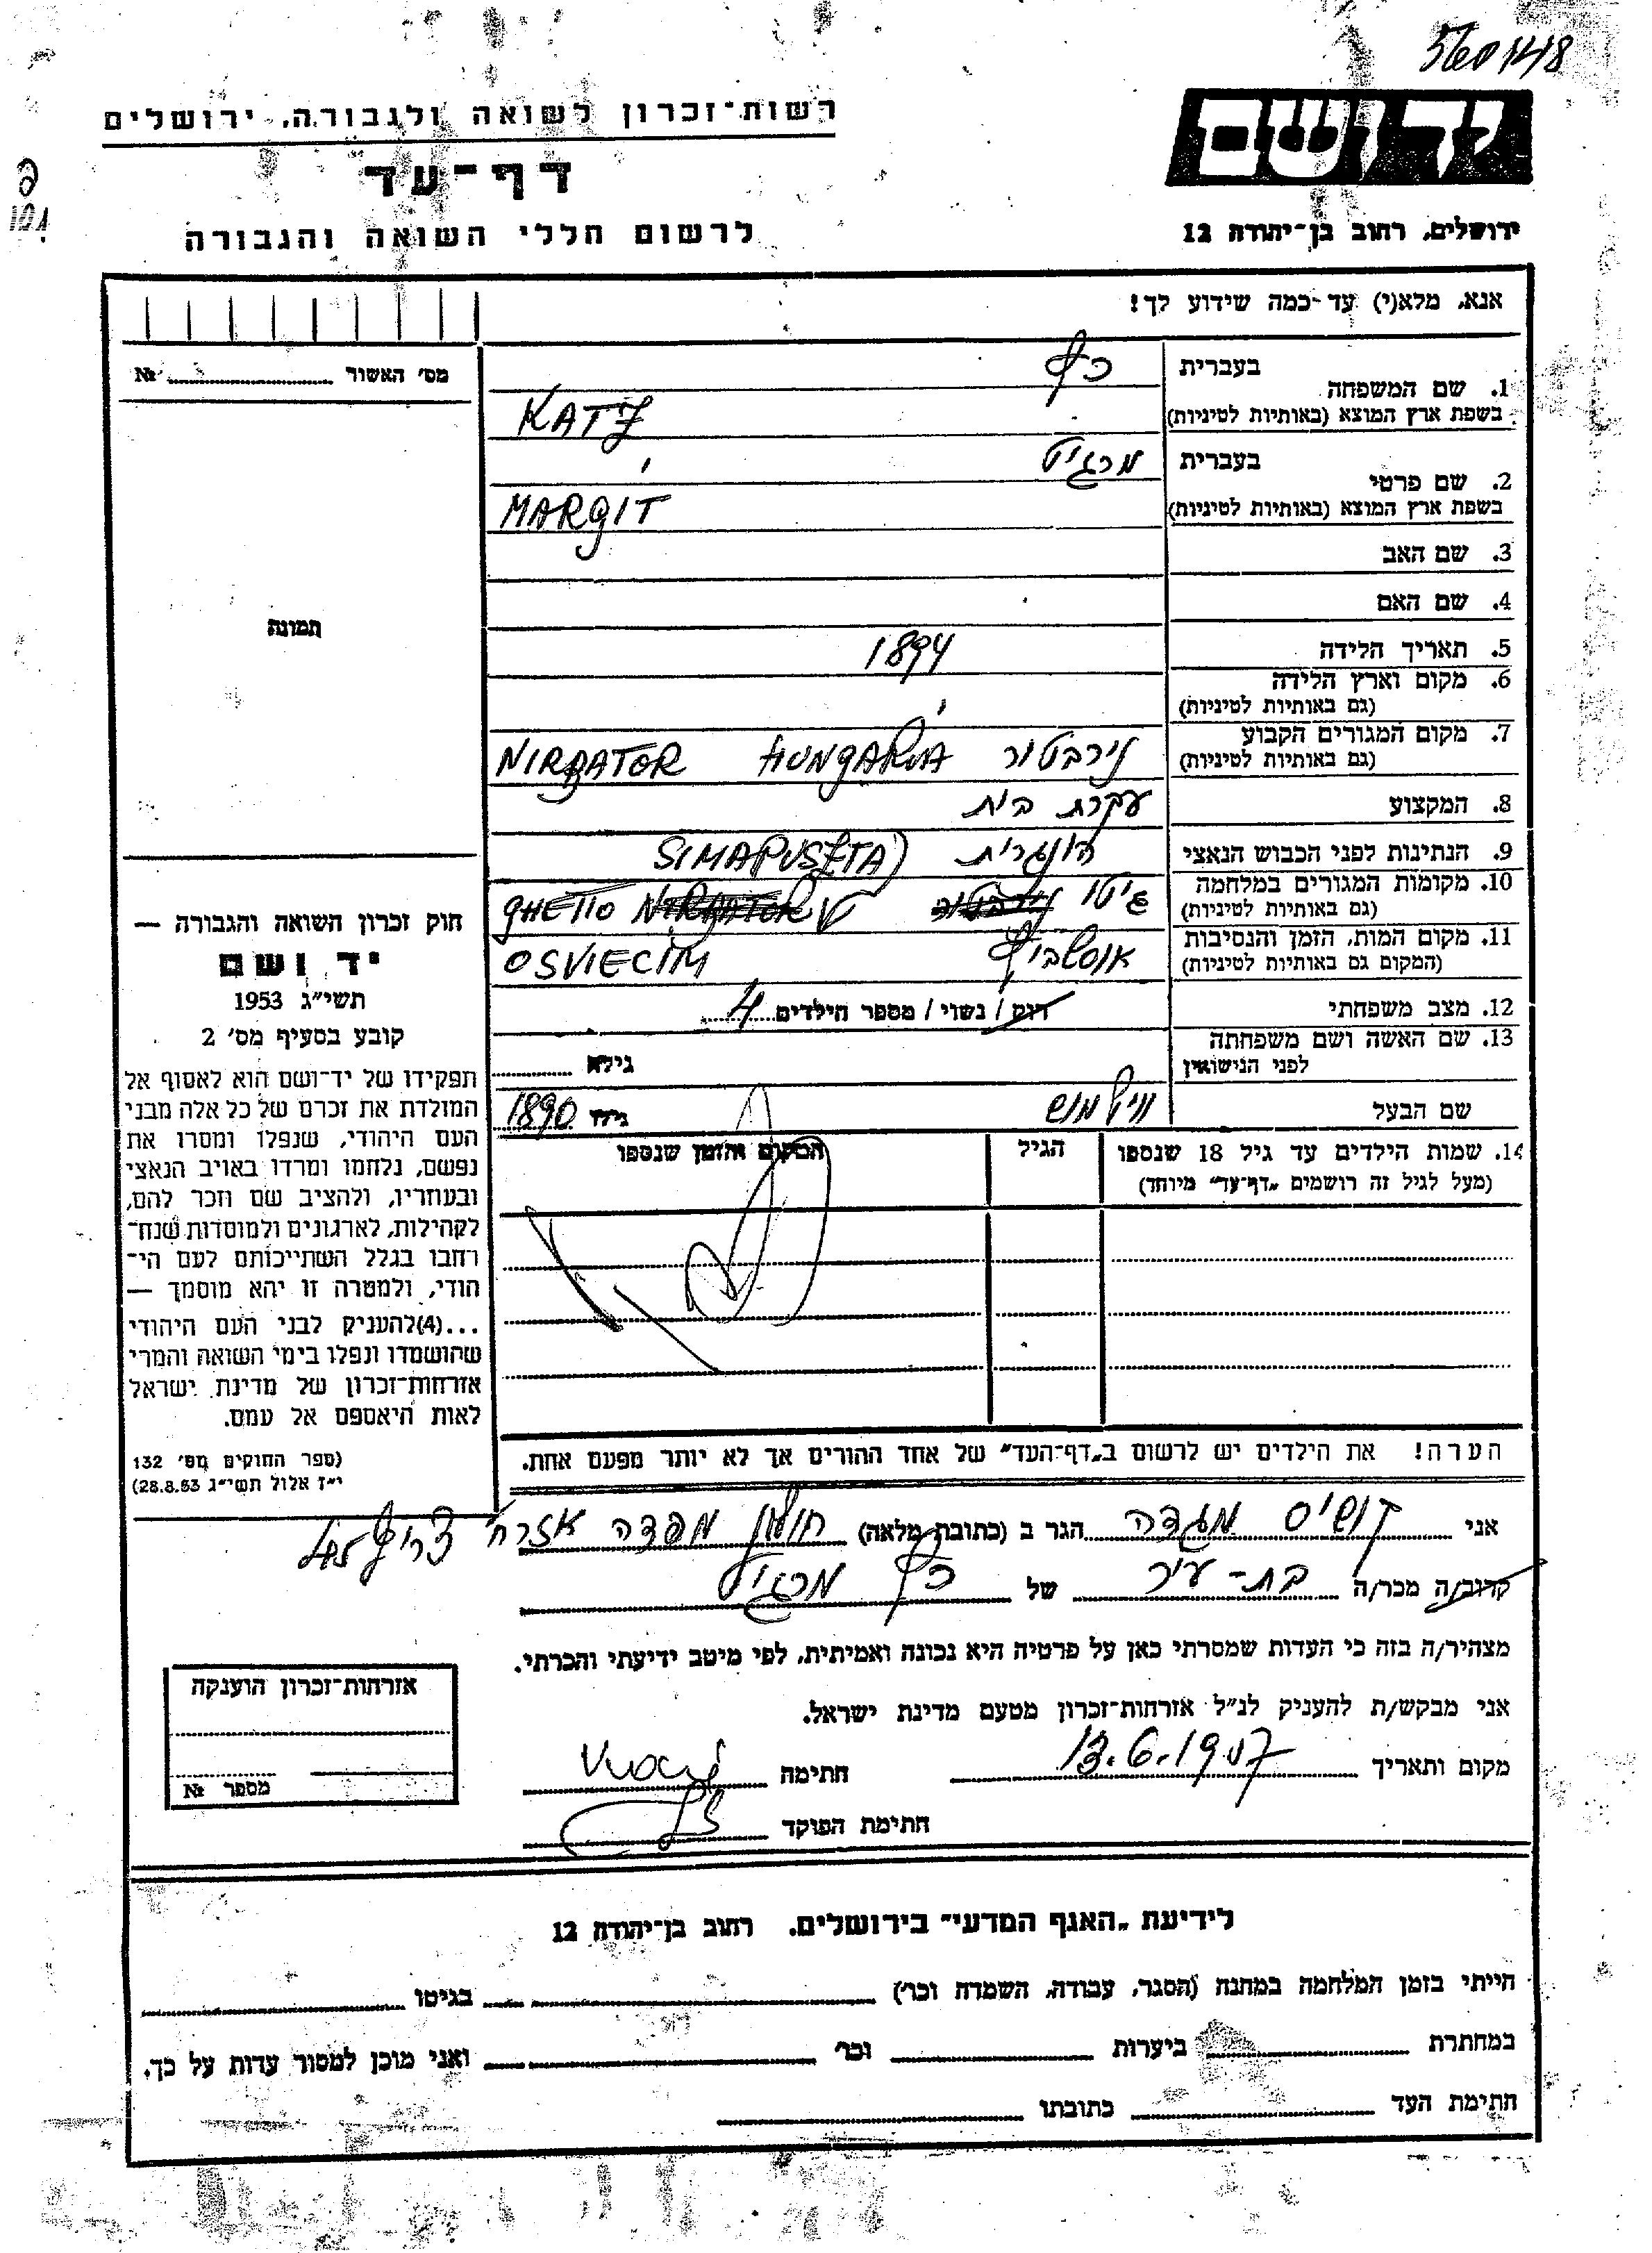 5601418
רשות־זכרון לשואה ולגבורה, ירושלים
דף־עד
לרשום חללי השואה והגבורה
יד ושם
ירושלים, רחוב בן־יהודה 12
אנא, מלא(י) עד־כמה שידוע לך!
מס' האשור № ........
תמונה
1. שם המשפחה
בעברית כץ
בשפת ארץ המוצא (באותיות לטיניות) KATZ
2. שם פרטי
בעברית מרגיט
בשפת ארץ המוצא (באותיות לטיניות) MARGIT
3. שם האב
4. שם האם
5. תאריך הלידה 1894
6. מקום וארץ הלידה
(גם באותיות לטיניות)
7. מקום המגורים הקבוע נירבטור HUNGARIA NIRBATOR
(גם באותיות לטיניות)
8. המקצוע עקרת בית
9. הנתינות לפני הכבוש הנאצי הונגרית
SIMAPUSZTA
10. מקומות המגורים במלחמה גיטו נירבטור GHETTO NIRBATOR
(גם באותיות לטיניות)
11. מקום המות, הזמן והנסיבות אושביץ OSVIECIM
(המקום גם באותיות לטיניות)
12. מצב משפחתי רווק / נשוי / מספר הילדים 4
13. שם האשה ושם משפחתה
לפני הנישואין גילא ........
שם הבעל גילו 1890
14. שמות הילדים עד גיל 18 שנספו
(מעל לגיל זה רושמים "דף־עד" מיוחד)
הגיל
המקום והזמן שנספו
הערה! את הילדים יש לרשום ב"דף־העד" של אחד ההורים אך לא יותר מפעם אחת.
חוק זכרון השואה והגבורה —
יד ושם
תשי"ג 1953
קובע בסעיף מס' 2
תפקידו של יד־ושם הוא לאסוף אל
המולדת את זכרם של כל אלה מבני
העם היהודי, שנפלו ומסרו את
נפשם, נלחמו ומרדו באויב הנאצי
ובעוזריו, ולהציב שם וזכר להם,
לקהילות, לארגונים ולמוסדות שנח־
רבו בגלל השתייכותם לעם הי־
הודי, ולמטרה זו יהא מוסמך —
...(4)להעניק לבני העם היהודי
שהושמדו ונפלו בימי השואה והמרי
אזרחות־זכרון של מדינת ישראל
לאות היאספם אל עמם.
(ספר החוקים מס' 132
י"ז אלול תשי"ג 28.8.53)
אני מגדה הגר ב (כתובת מלאה)
קרוב/ה מכר/ה בת־עיר של כץ מרגיט
מצהיר/ה בזה כי העדות שמסרתי כאן על פרטיה היא נכונה ואמיתית, לפי מיטב ידיעתי והכרתי.
אני מבקש/ת להעניק לנ"ל אזרחות־זכרון מטעם מדינת ישראל.
מקום ותאריך חתימה
חתימת הפוקד
אזרחות־זכרון הוענקה
מספר №
לידיעת "האגף המדעי" בירושלים. רחוב בן־יהודה 12
הייתי בזמן המלחמה במחנה (הסגר, עבודה, השמדה וכו') בגיטו
במחתרת ביערות וכו' ואני מוכן למסור עדות על כך.
חתימת העד כתובתו